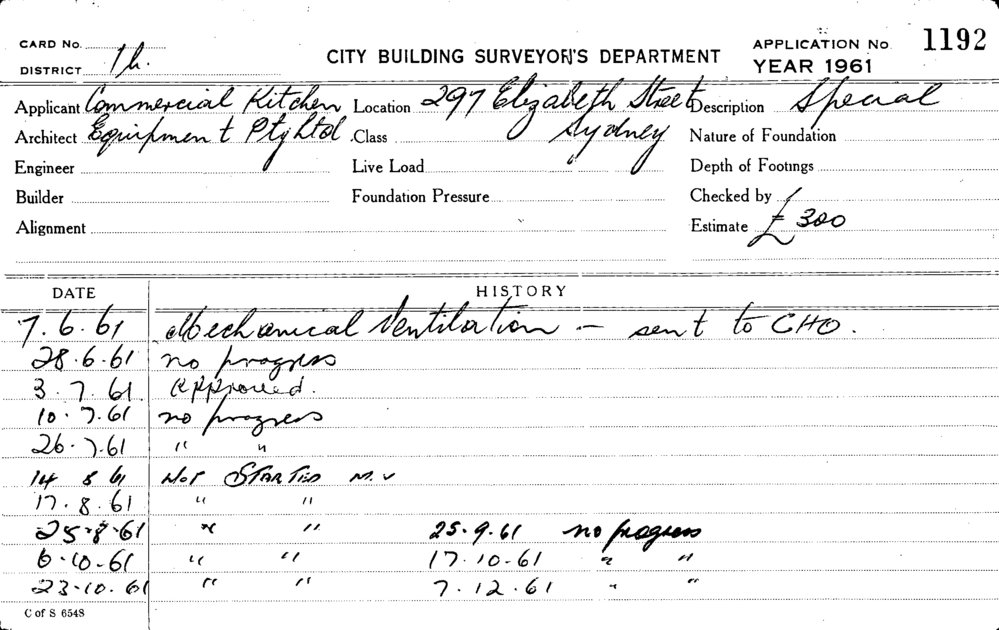 CARD No.
DISTRICT 1h.
CITY BUILDING SURVEYOR'S DEPARTMENT
APPLICATION No. 1192
YEAR 1961
Applicant Commercial Kitchen Location 297 Elizabeth Street Description Special
Architect Equipment Pty Ltd Class Sydney Nature of Foundation
Engineer Live Load Depth of Footings
Builder Foundation Pressure Checked by
Alignment Estimate £300
DATE HISTORY
7.6.61 Mechanical Ventilation - sent to CHO.
28.6.61 no progress
3.7.61 Approved.
10.7.61 no progress
26.7.61 " "
14 8 61 NOT STARTED M.V
17.8.61 " "
25.8.61 " " 25.9.61 no progress
6.10.61 " " 17.10.61 " "
23.10.61 " " 7.12.61 " "
C of S 6548